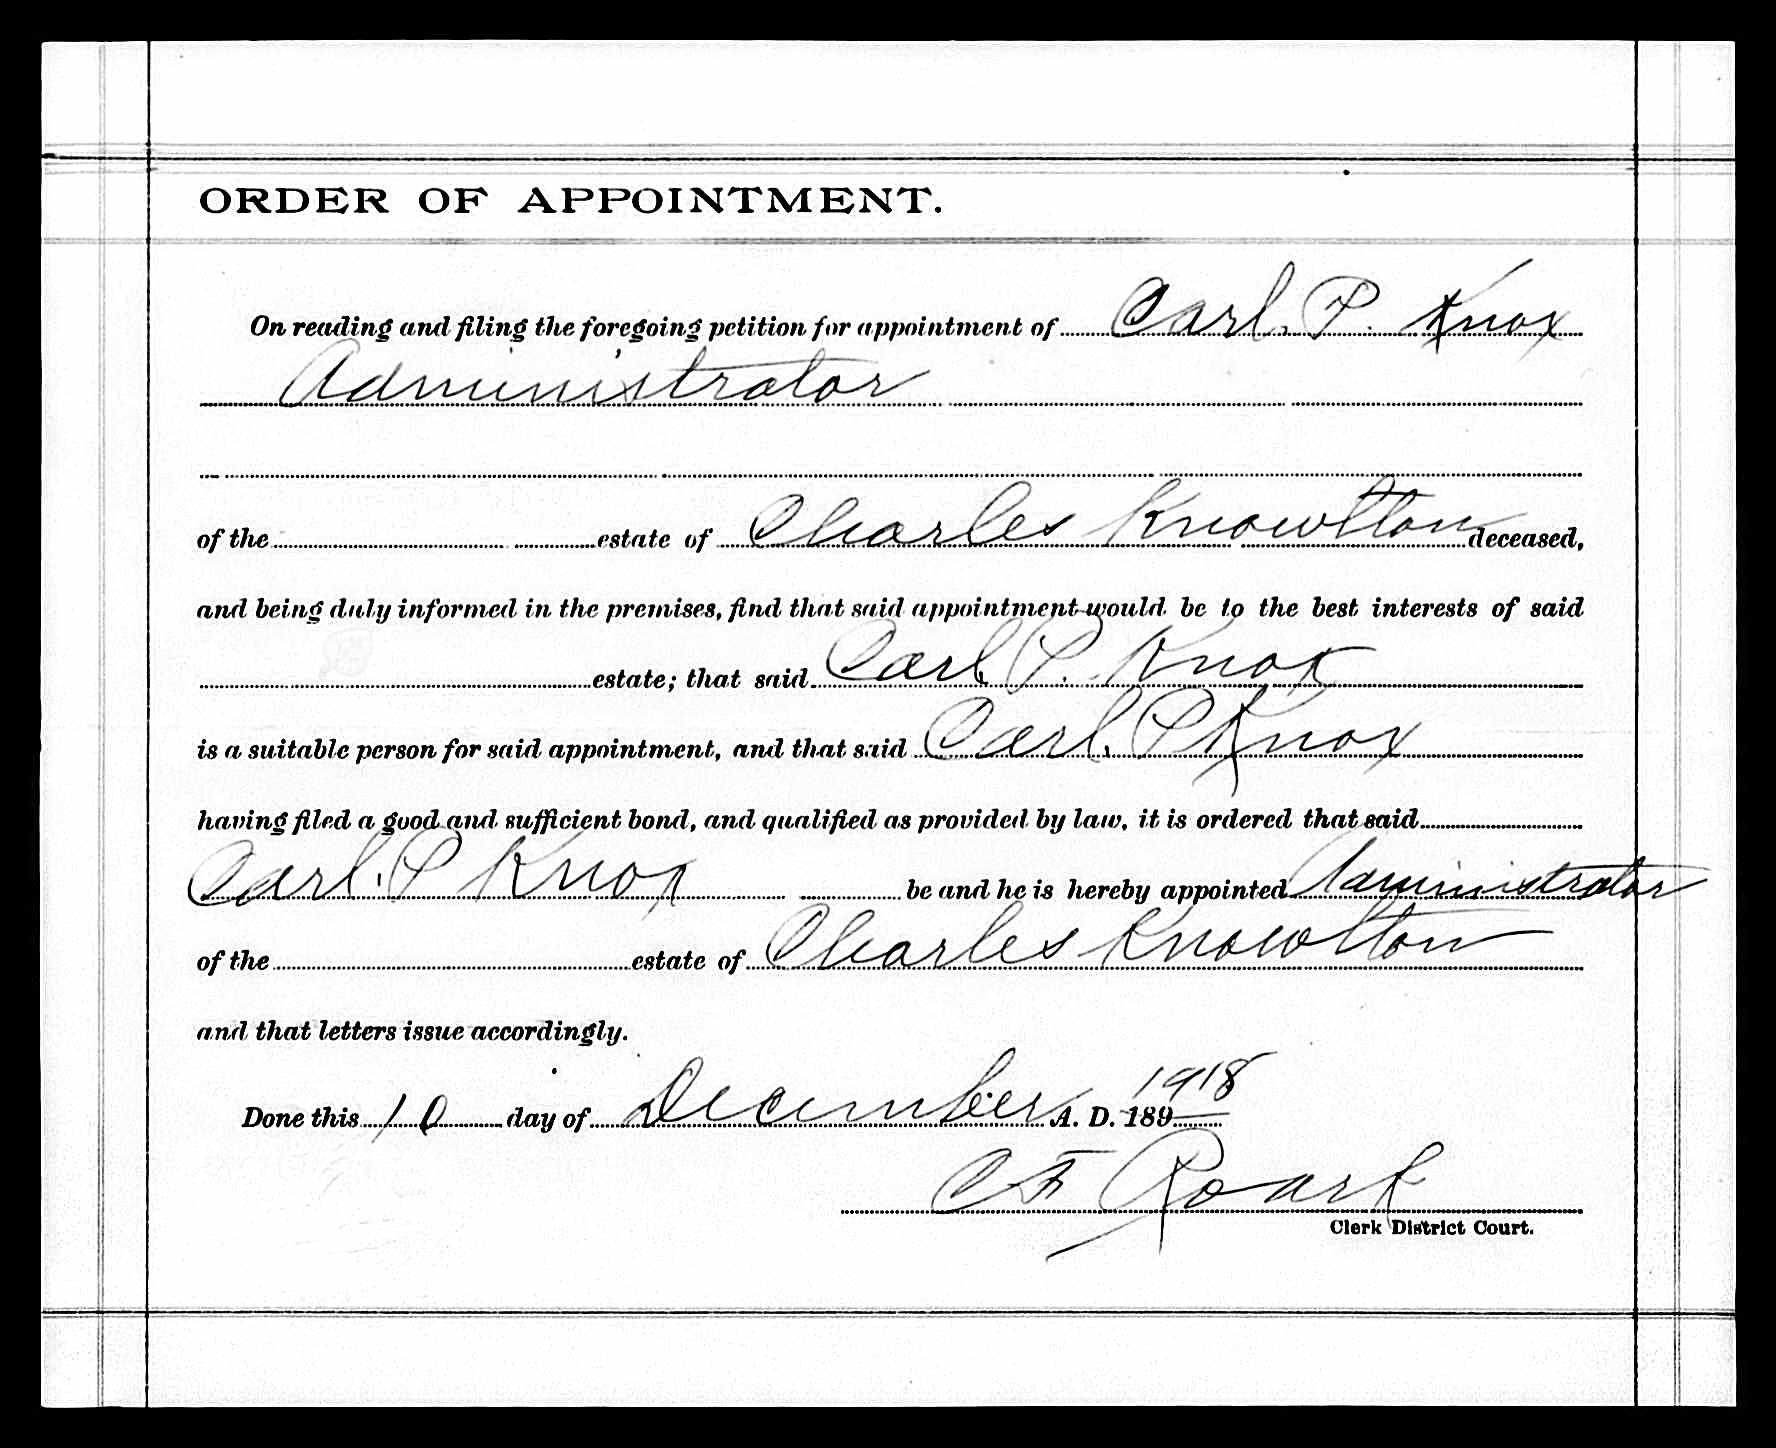 ORDER OF APPOINTMENT.
On reading and filing the foregoing petition for appointment of Carl. P. Knox
Administrator
of the estate of Charles Knowlton deceased,
and being duly informed in the premises, find that said appointment would be to the best interests of said
estate; that said Carl P. Knox
is a suitable person for said appointment, and that said Carl. P Knox
having filed a good and sufficient bond, and qualified as provided by law, it is ordered that said
Carl. P Knox be and he is hereby appointed Administrator
of the estate of Charles Knowlton
and that letters issue accordingly.
Done this 10 day of December A. D. 189 1918
C F Roark
Clerk District Court.